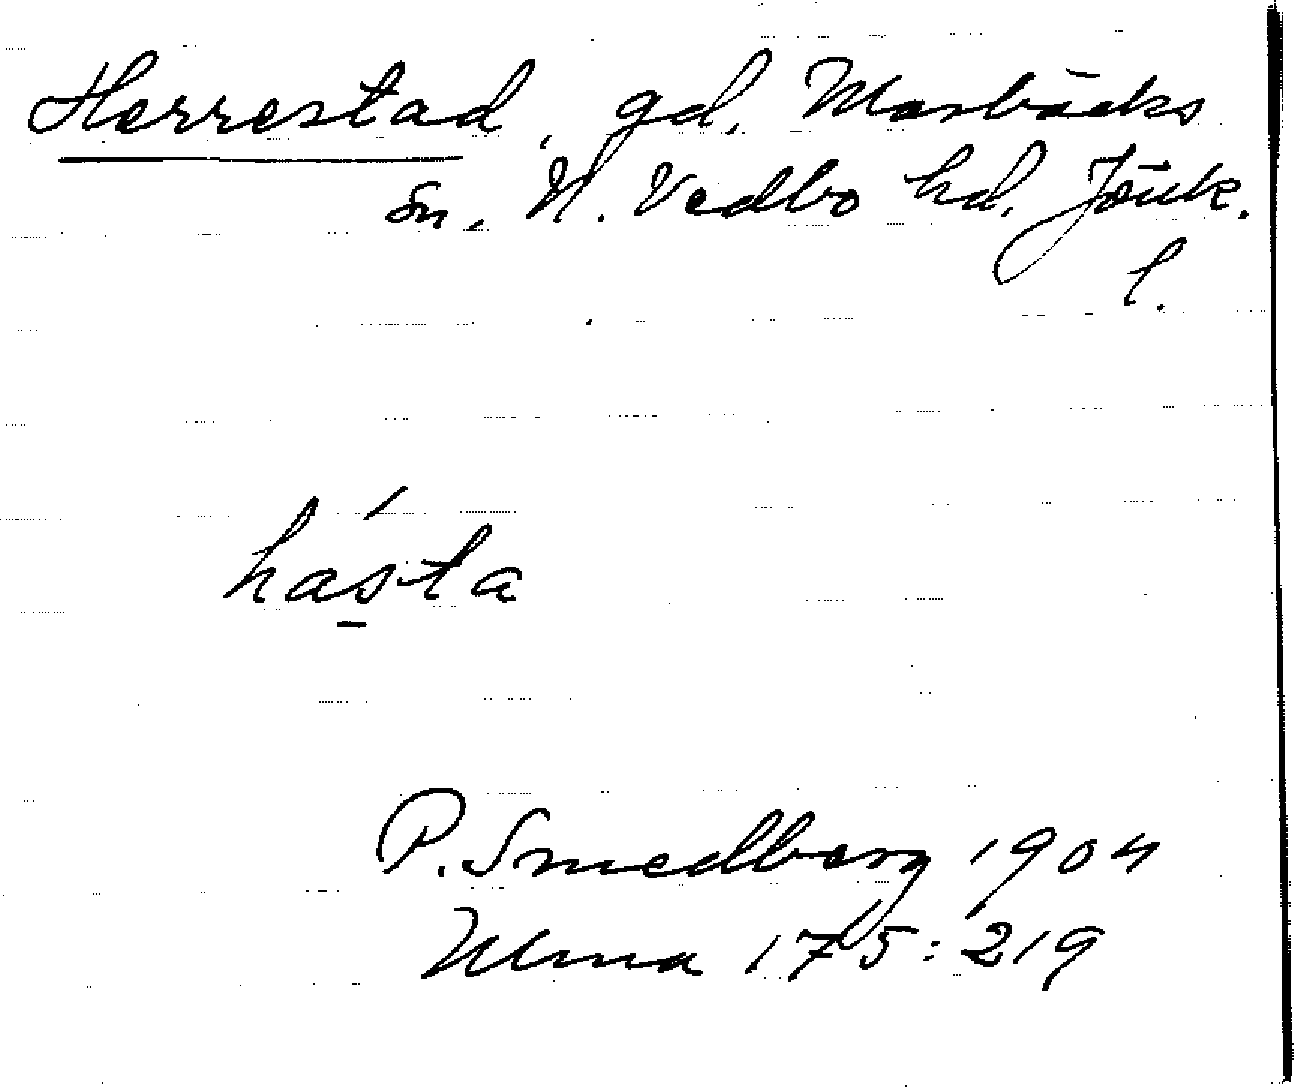 Herrestad, gd, Marbäcks
sn, N. Vedbo hd, Jönk.
l.
haś̱ta
P. Smedberg 1904
Ulma 175:219